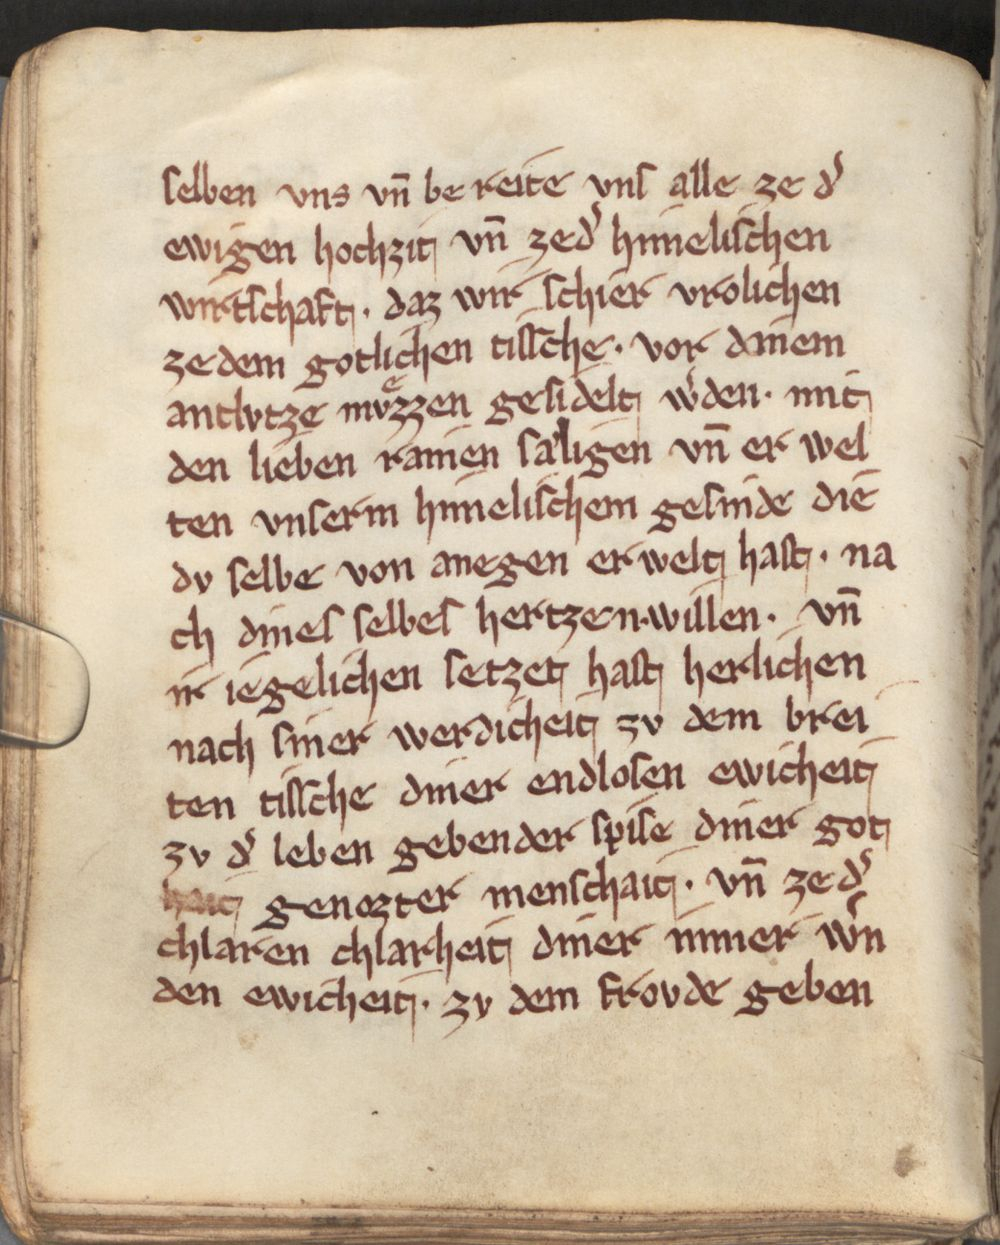 selben vns vn̄ be reite vns alle ze d͛
ewigen hochzit vn̄ zed͛ himelischen
wirtschaft · daz wir schier vrolichen
zedem gotlichen tissche · vor dinem
antlvtze mvͤzzen gesidelt w͛den · mit
den lieben rainen sæligen vn̄ er wel
ten vnserm himelischem gesinde die
dv selbe von anegen er welt hast · na
ch dines selbes hertzen·willen · vn̄
ir iegelichen setzet hast herlichen
nach siner werdicheit zv dem brei
ten tissche diner endlosen ewicheit
zv d͛ leben gebender spise diner got
hait genozter menschait · vn̄ ze d͛
chlaren chlarheit diner nimer w͛n
den ewicheit · zv dem frovde geben